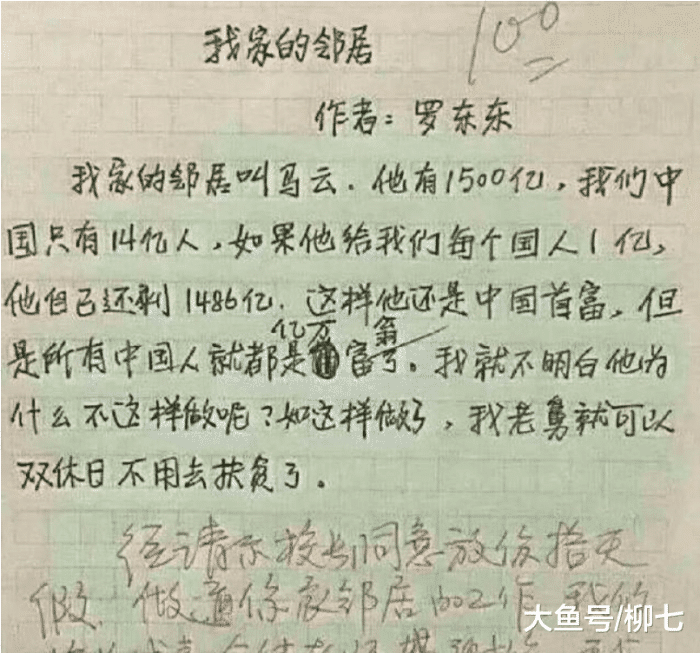 我家的邻居
100
作者：罗东东
我家的邻居叫马云．他有1500亿，我们中
国只有14亿人，如果他给我们每个国人1亿，
他自己还剩1486亿．这样他还是中国首富，但
亿万 翁
是所有中国人就都是富了。我就不明白他为
什么不这样做呢？如这样做了，我老舅就可以
双休日不用去扶贫了。
经请示校长同意放你拾天
假，做通你家邻居的工作，我们
大鱼号/柳七